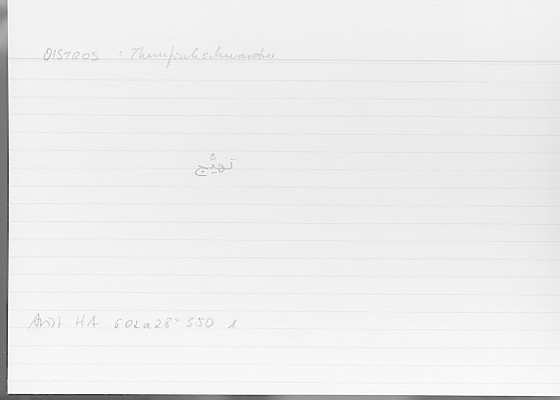 OISTROS : Thunfischschmarotzer
تهيّج
Arist HA 602a28 550 1